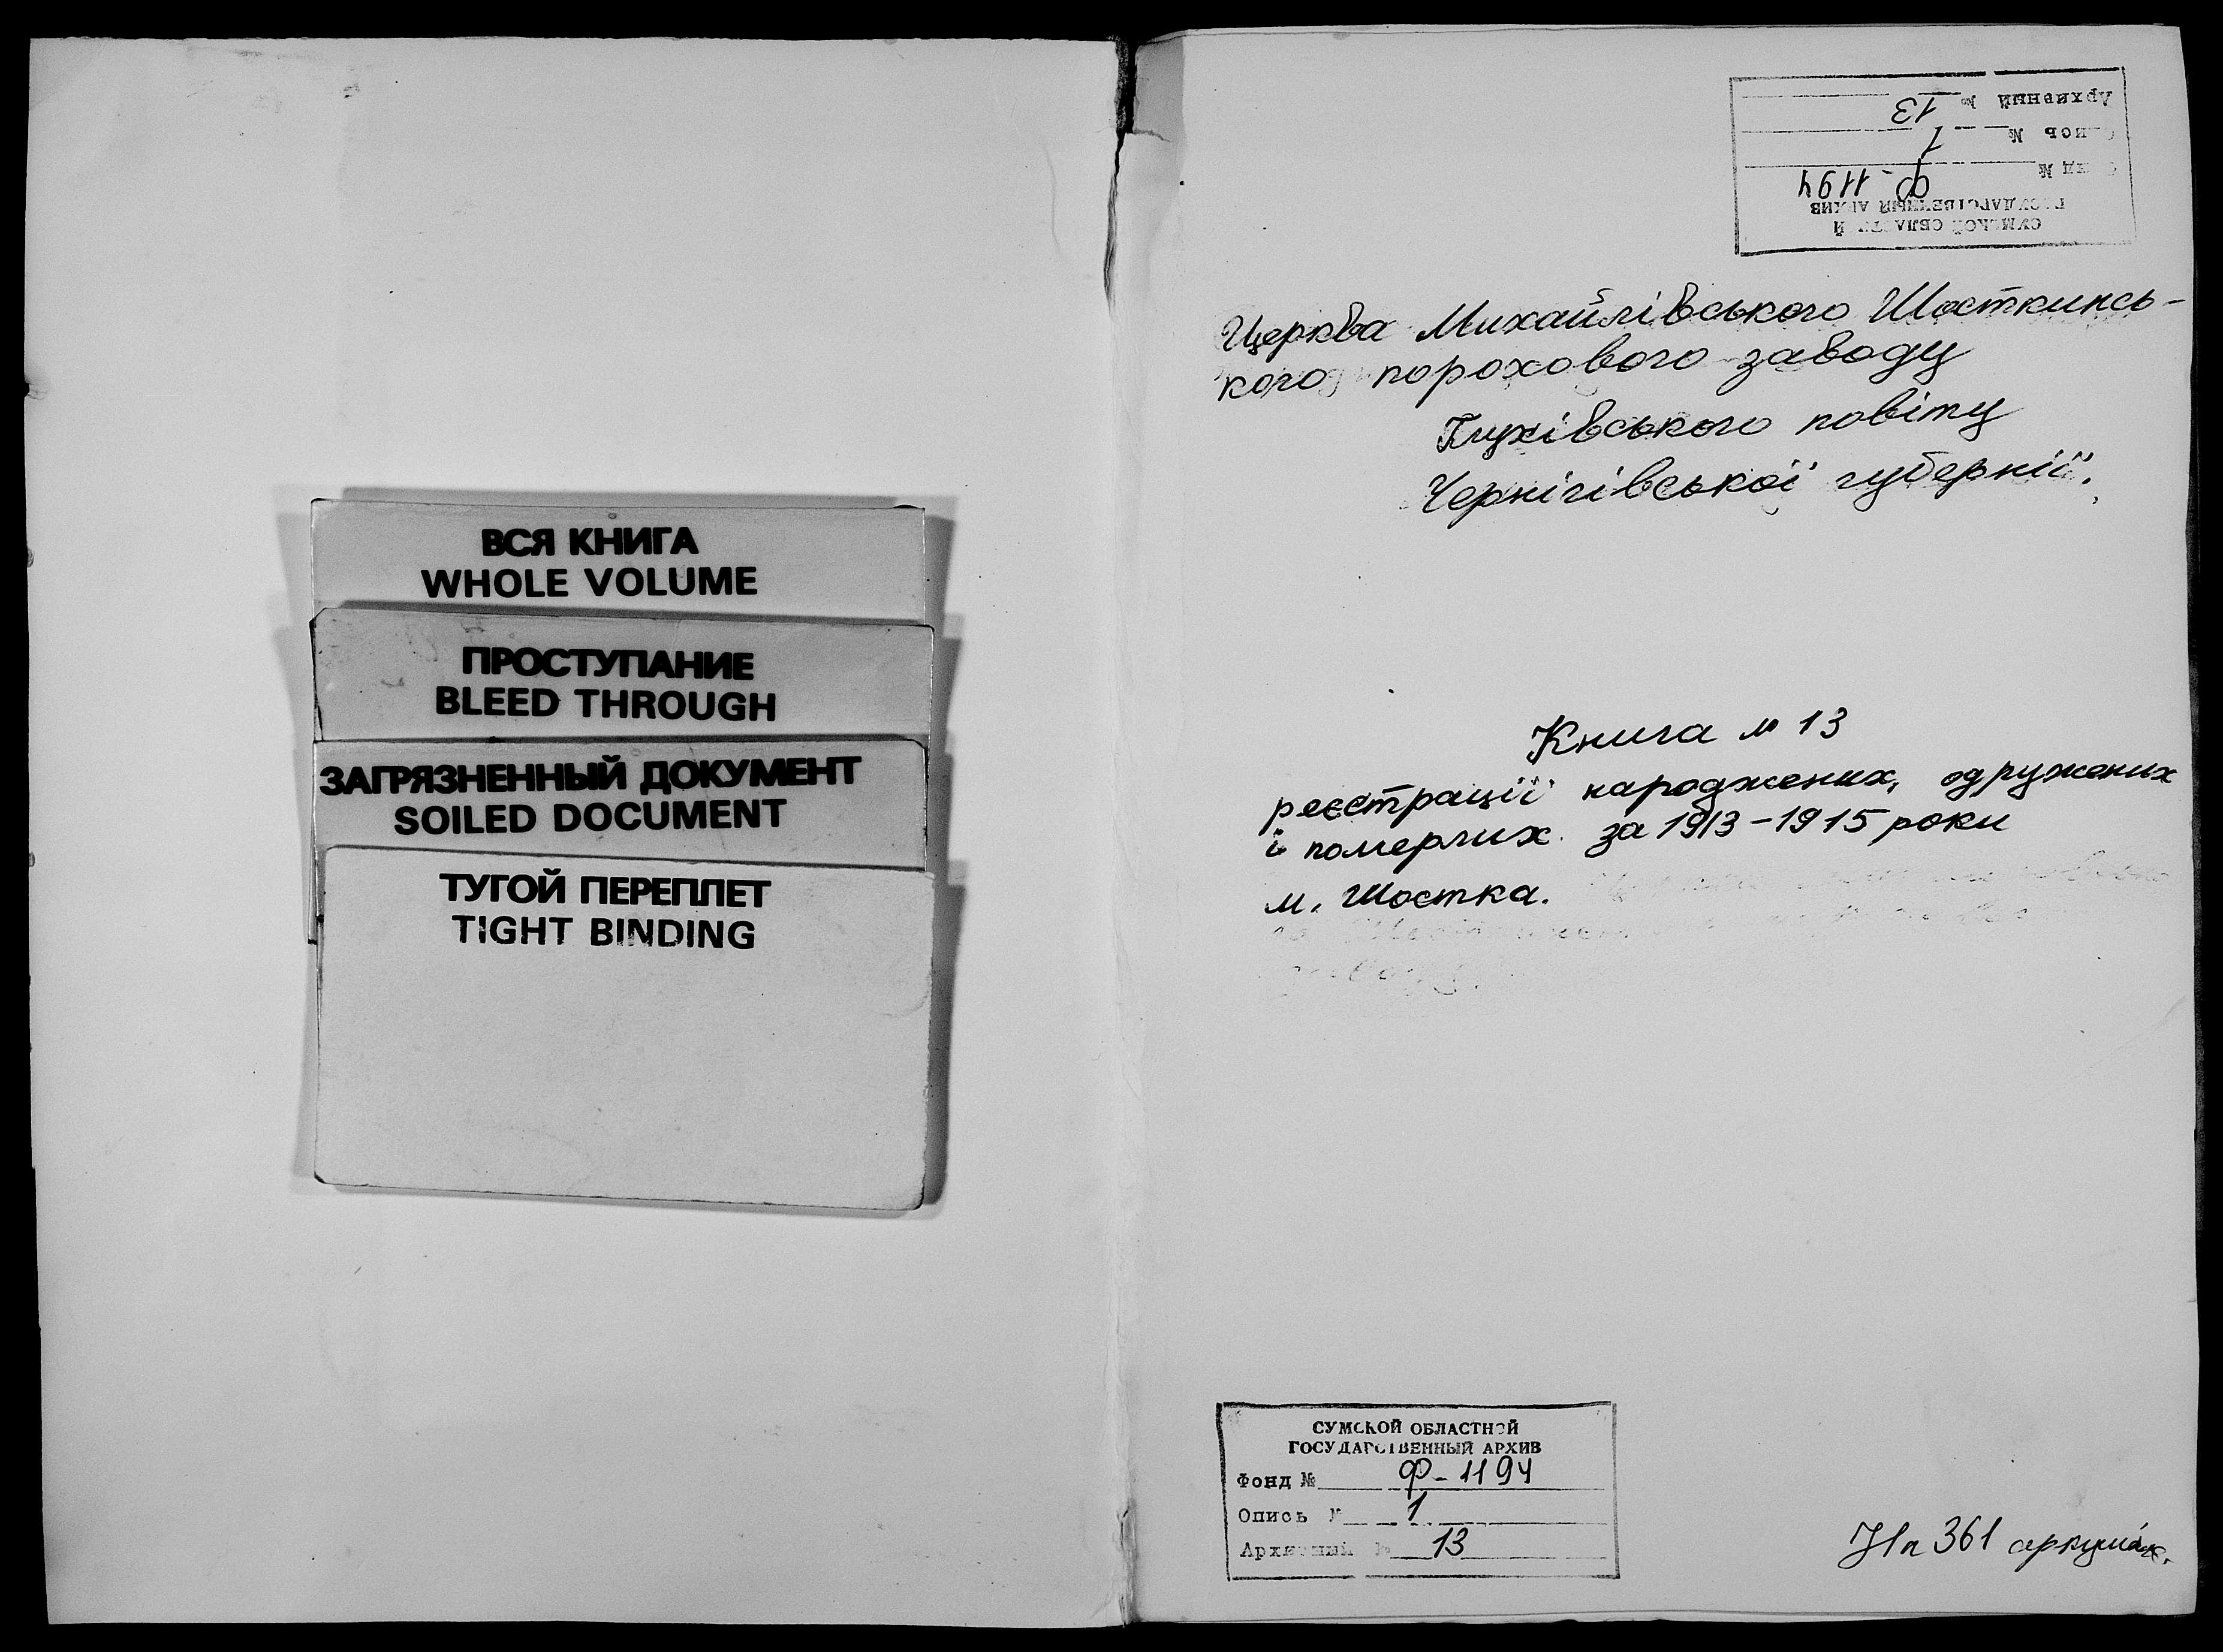 ВСЯ КНИГА
WHOLE VOLUME
ПРОСТУПАНИЕ
BLEED THROUGH
ЗАГРЯЗНЕННЫЙ ДОКУМЕНТ
SOILED DOCUMENT
ТУГОЙ ПЕРЕПЛЕТ
TIGHT BINDING
СУМСКОЙ ОБЛАСТНОЙ
ГОСУДАРСТВЕННЫЙ АРХИВ
Фонд № Ф-1194
Опись № 1
Архивный № 13
Церква Михайлівського Шосткинсь-
кого порохового заводу
Глухівського повіту
Чернігівської губернії.
Книга № 13
реєстрації народжених, одружених
і померлих за 1913-1915 роки
м. Шостка.
СУМСКОЙ ОБЛАСТНОЙ
ГОСУДАРСТВЕННЫЙ АРХИВ
Фонд № Ф-1194
Опись № 1
Архивный № 13
На 361 аркушах.